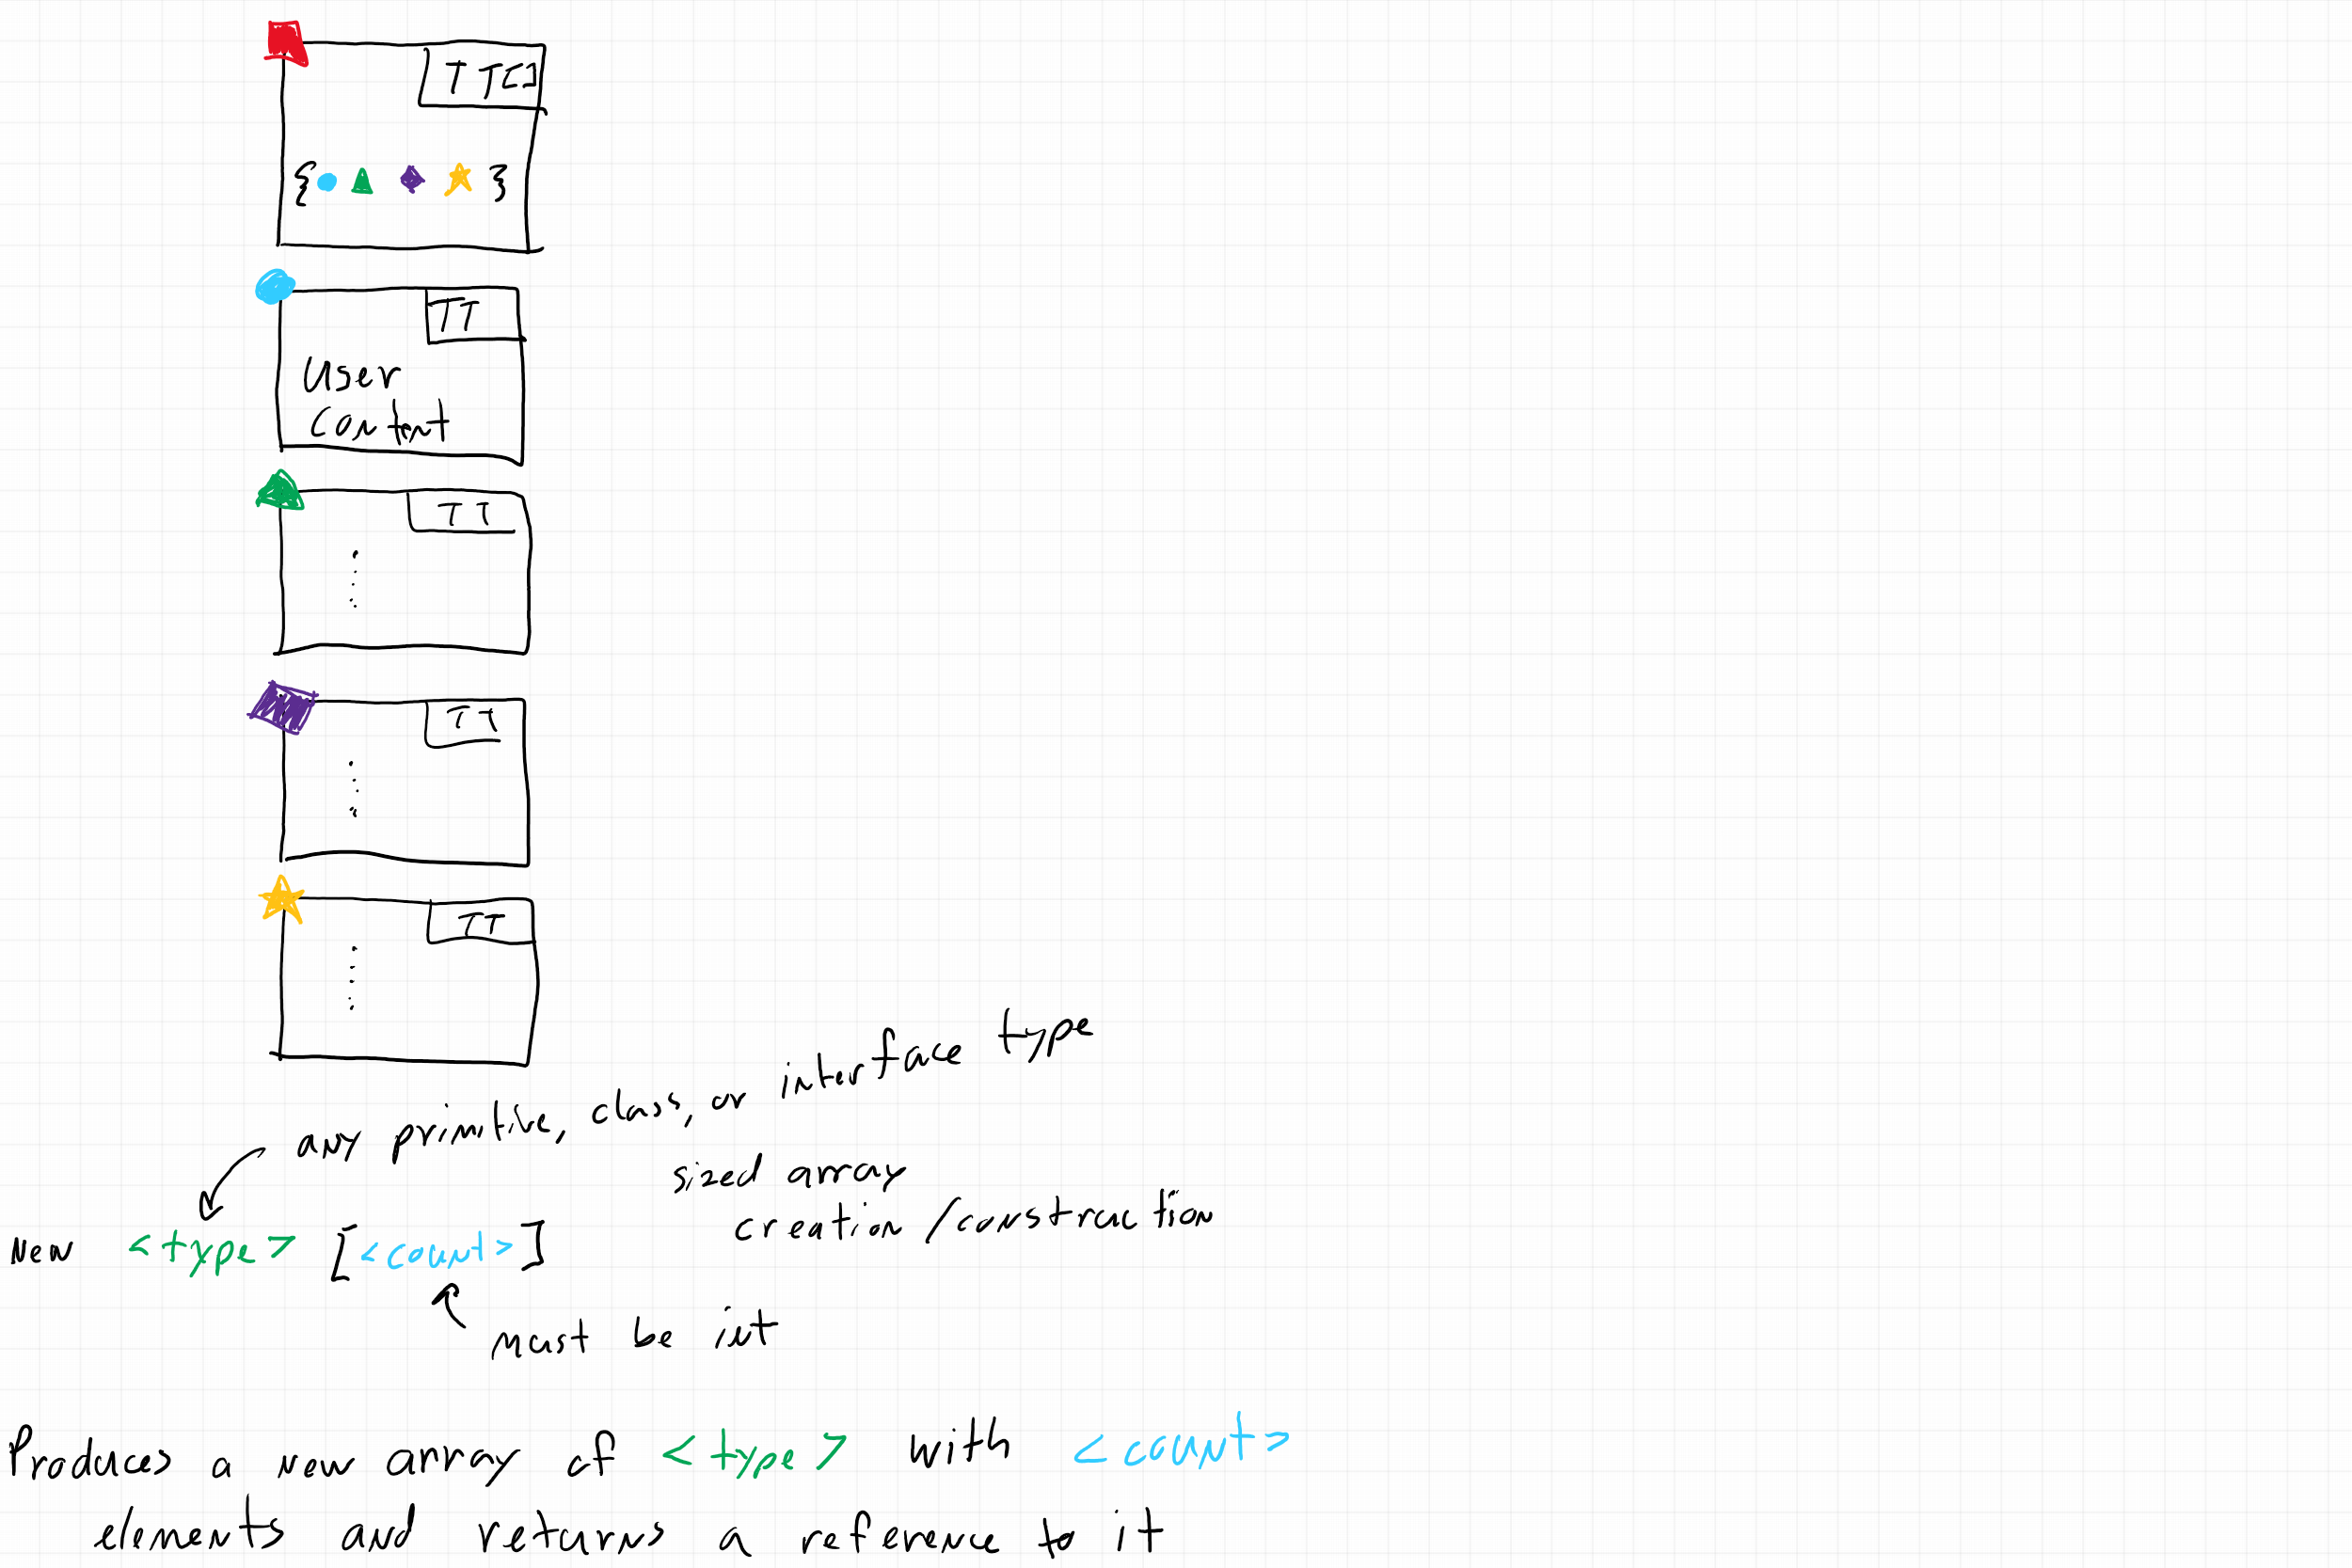 T T[]
{ }
TT
User
Content
TT
TT
TT
any primitive, class, or interface type
sized array
creation/construction
new <type> [<count>]
must be int
Produces a new array of <type> with <count>
elements and returns a reference to it